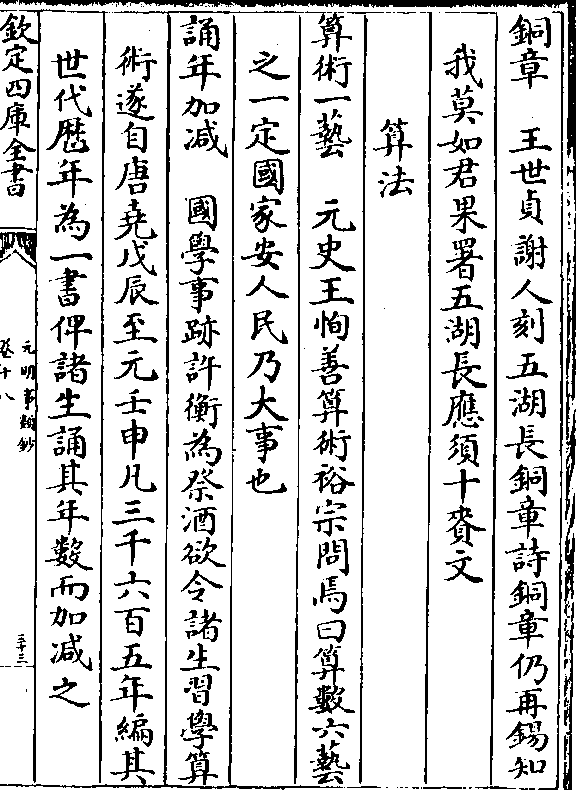 銅章　王世貞謝人刻五湖長銅章詩銅章仍再錫知
我莫如君果署五湖長應須十賚文
算法
算術一藝　元史王恂善算術裕宗問焉曰算數六藝
之一定國家安人民乃大事也
誦年加减　國學事跡許衡為祭酒欲令諸生習學算
術遂自唐堯戊辰至元壬申凡三千六百五年編其
世代歴年為一書俾諸生誦其年數而加减之
欽定四庫全書
元明事類鈔
卷十八
三十三